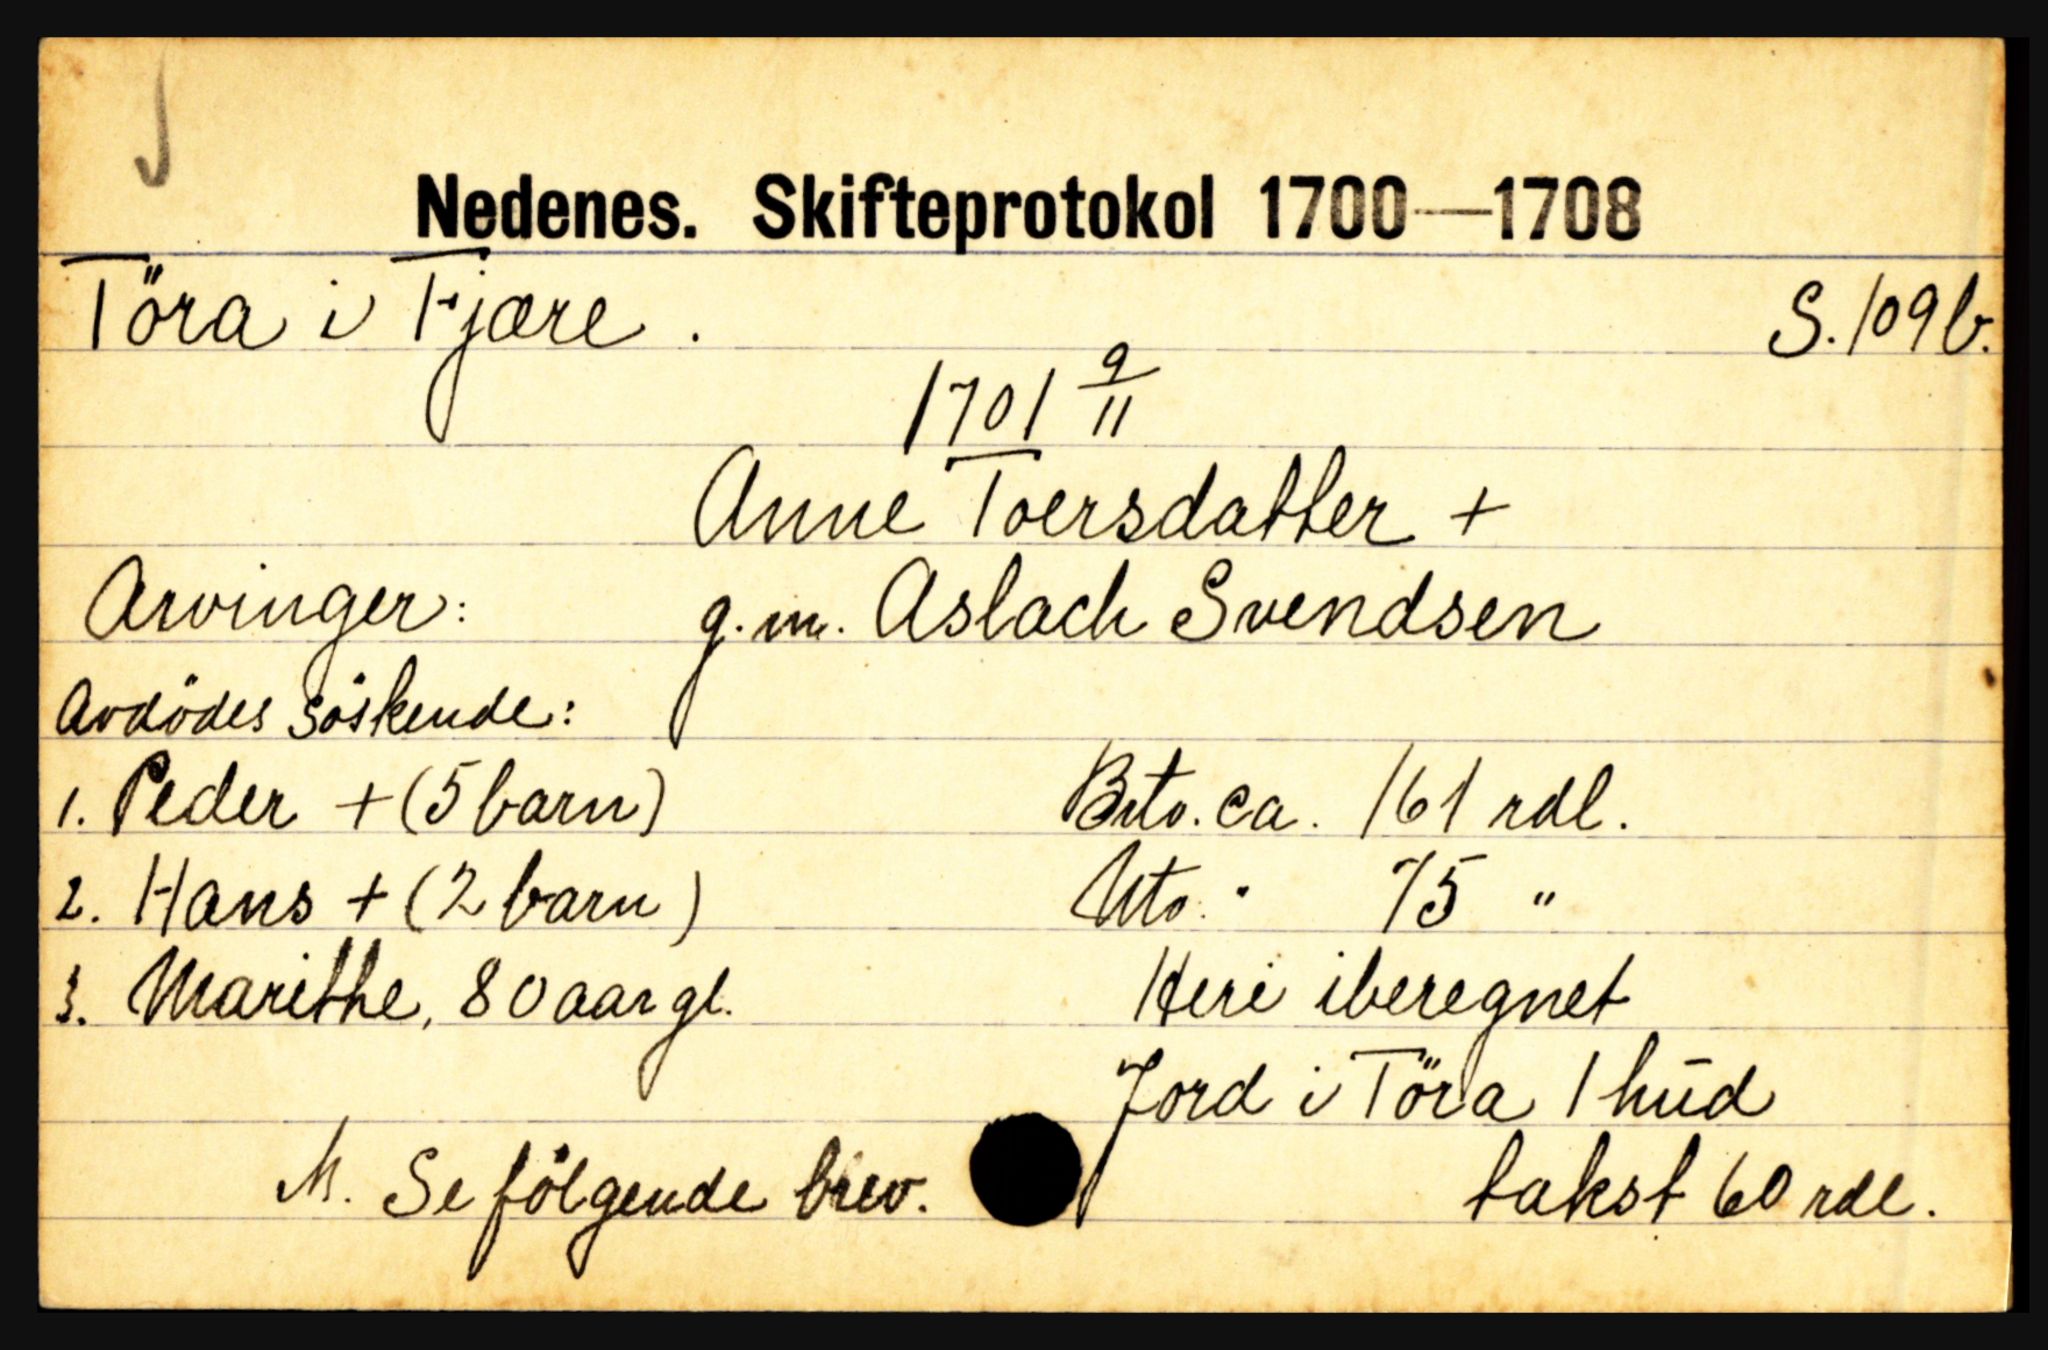 Nedenes. Skifteprotokol 1700—1708
Töra i Fjære. S. 109b.
1701 9/11
Anne Toersdatter +
Arvinger: g.m. Aslach Svendsen
Avdödes söskende:
1. Peder + (5 barn) Bto. ca. 161 rdl.
2. Hans + (2 barn) Nto. " 75 "
3. Marithe, 80 aar gl. Heri iberegnet
Jord i Töra 1 hud
M. Se fölgende brev. takst 60 rdl.